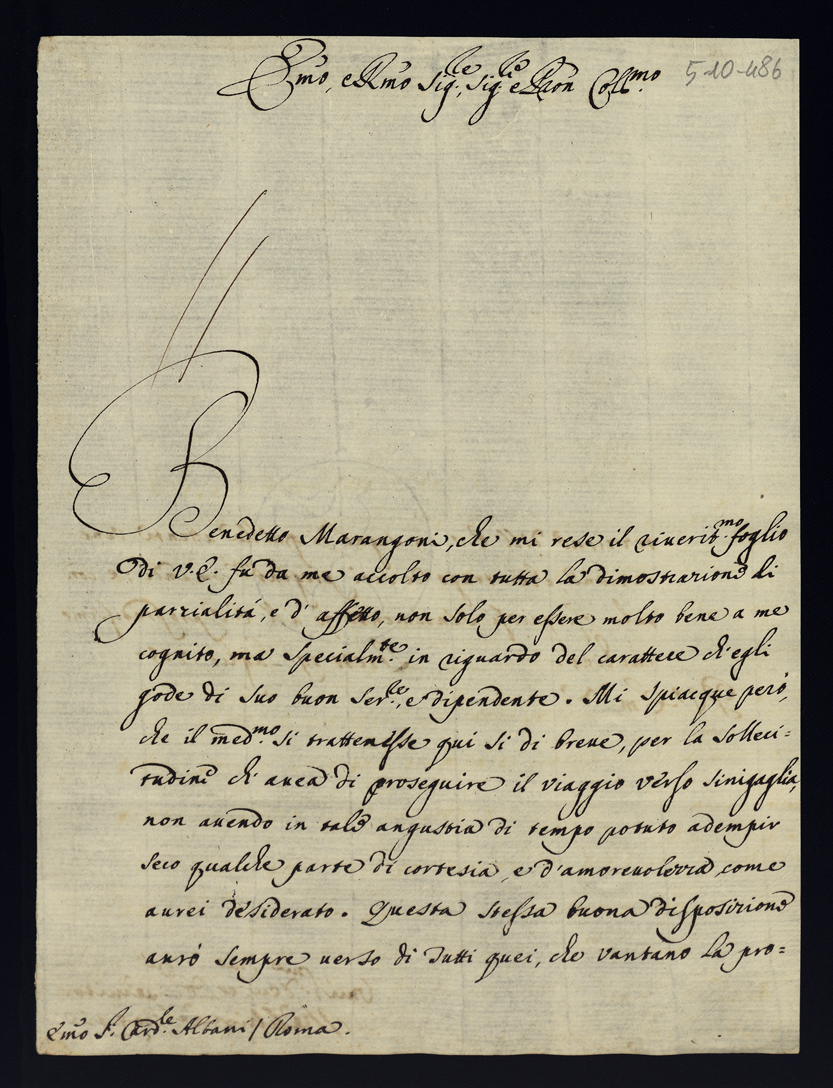 Emo, e Rmo Sig.re, Sig.re e Pron Coll.mo
5-10-486
Benedetto Marangoni, che mi rese il riverit.mo foglio
di V.E. fu da me accolto con tutta la dimostrazione di
parzialitá, e d'affetto, non solo per essere molto bene a me
cognito, ma specialm.te in riguardo del carattere ch'egli
gode di suo buon Ser.re, e dipendente. Mi spiacque peró,
che il med.mo si trattenesse qui si di breve, per la solleci=
tudine ch'avea di proseguire il viaggio verso Sinigaglia,
non avendo in tale angustia di tempo potuto adempir
seco qualche parte di cortesia, e d'amorevolezza, come
avrei desiderato. Questa stessa buona disposizione
avró sempre verso di tutti quei, che vantano la pro=
Emo S.r Card.le Albani / Roma.